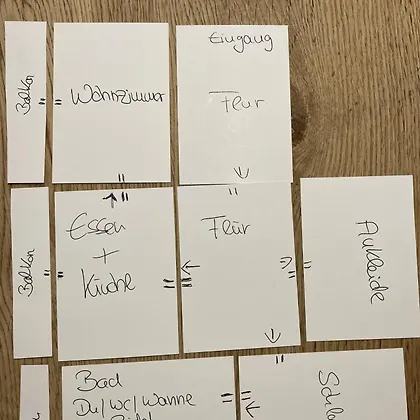 Balkon
Wohnzimmer
Eingang
Flur
Balkon
Essen
+
Küche
Flur
Ankleide
Bad
Du/WC/Wanne